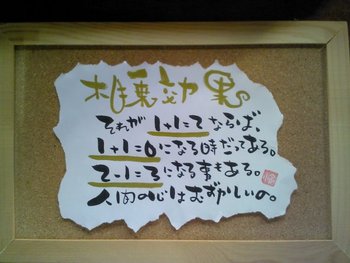 相乗効果。
それが1+1=2ならば、
1+1=0になる時だってある。
2-1=3になる事もある。
人間の心はむずかしいの。